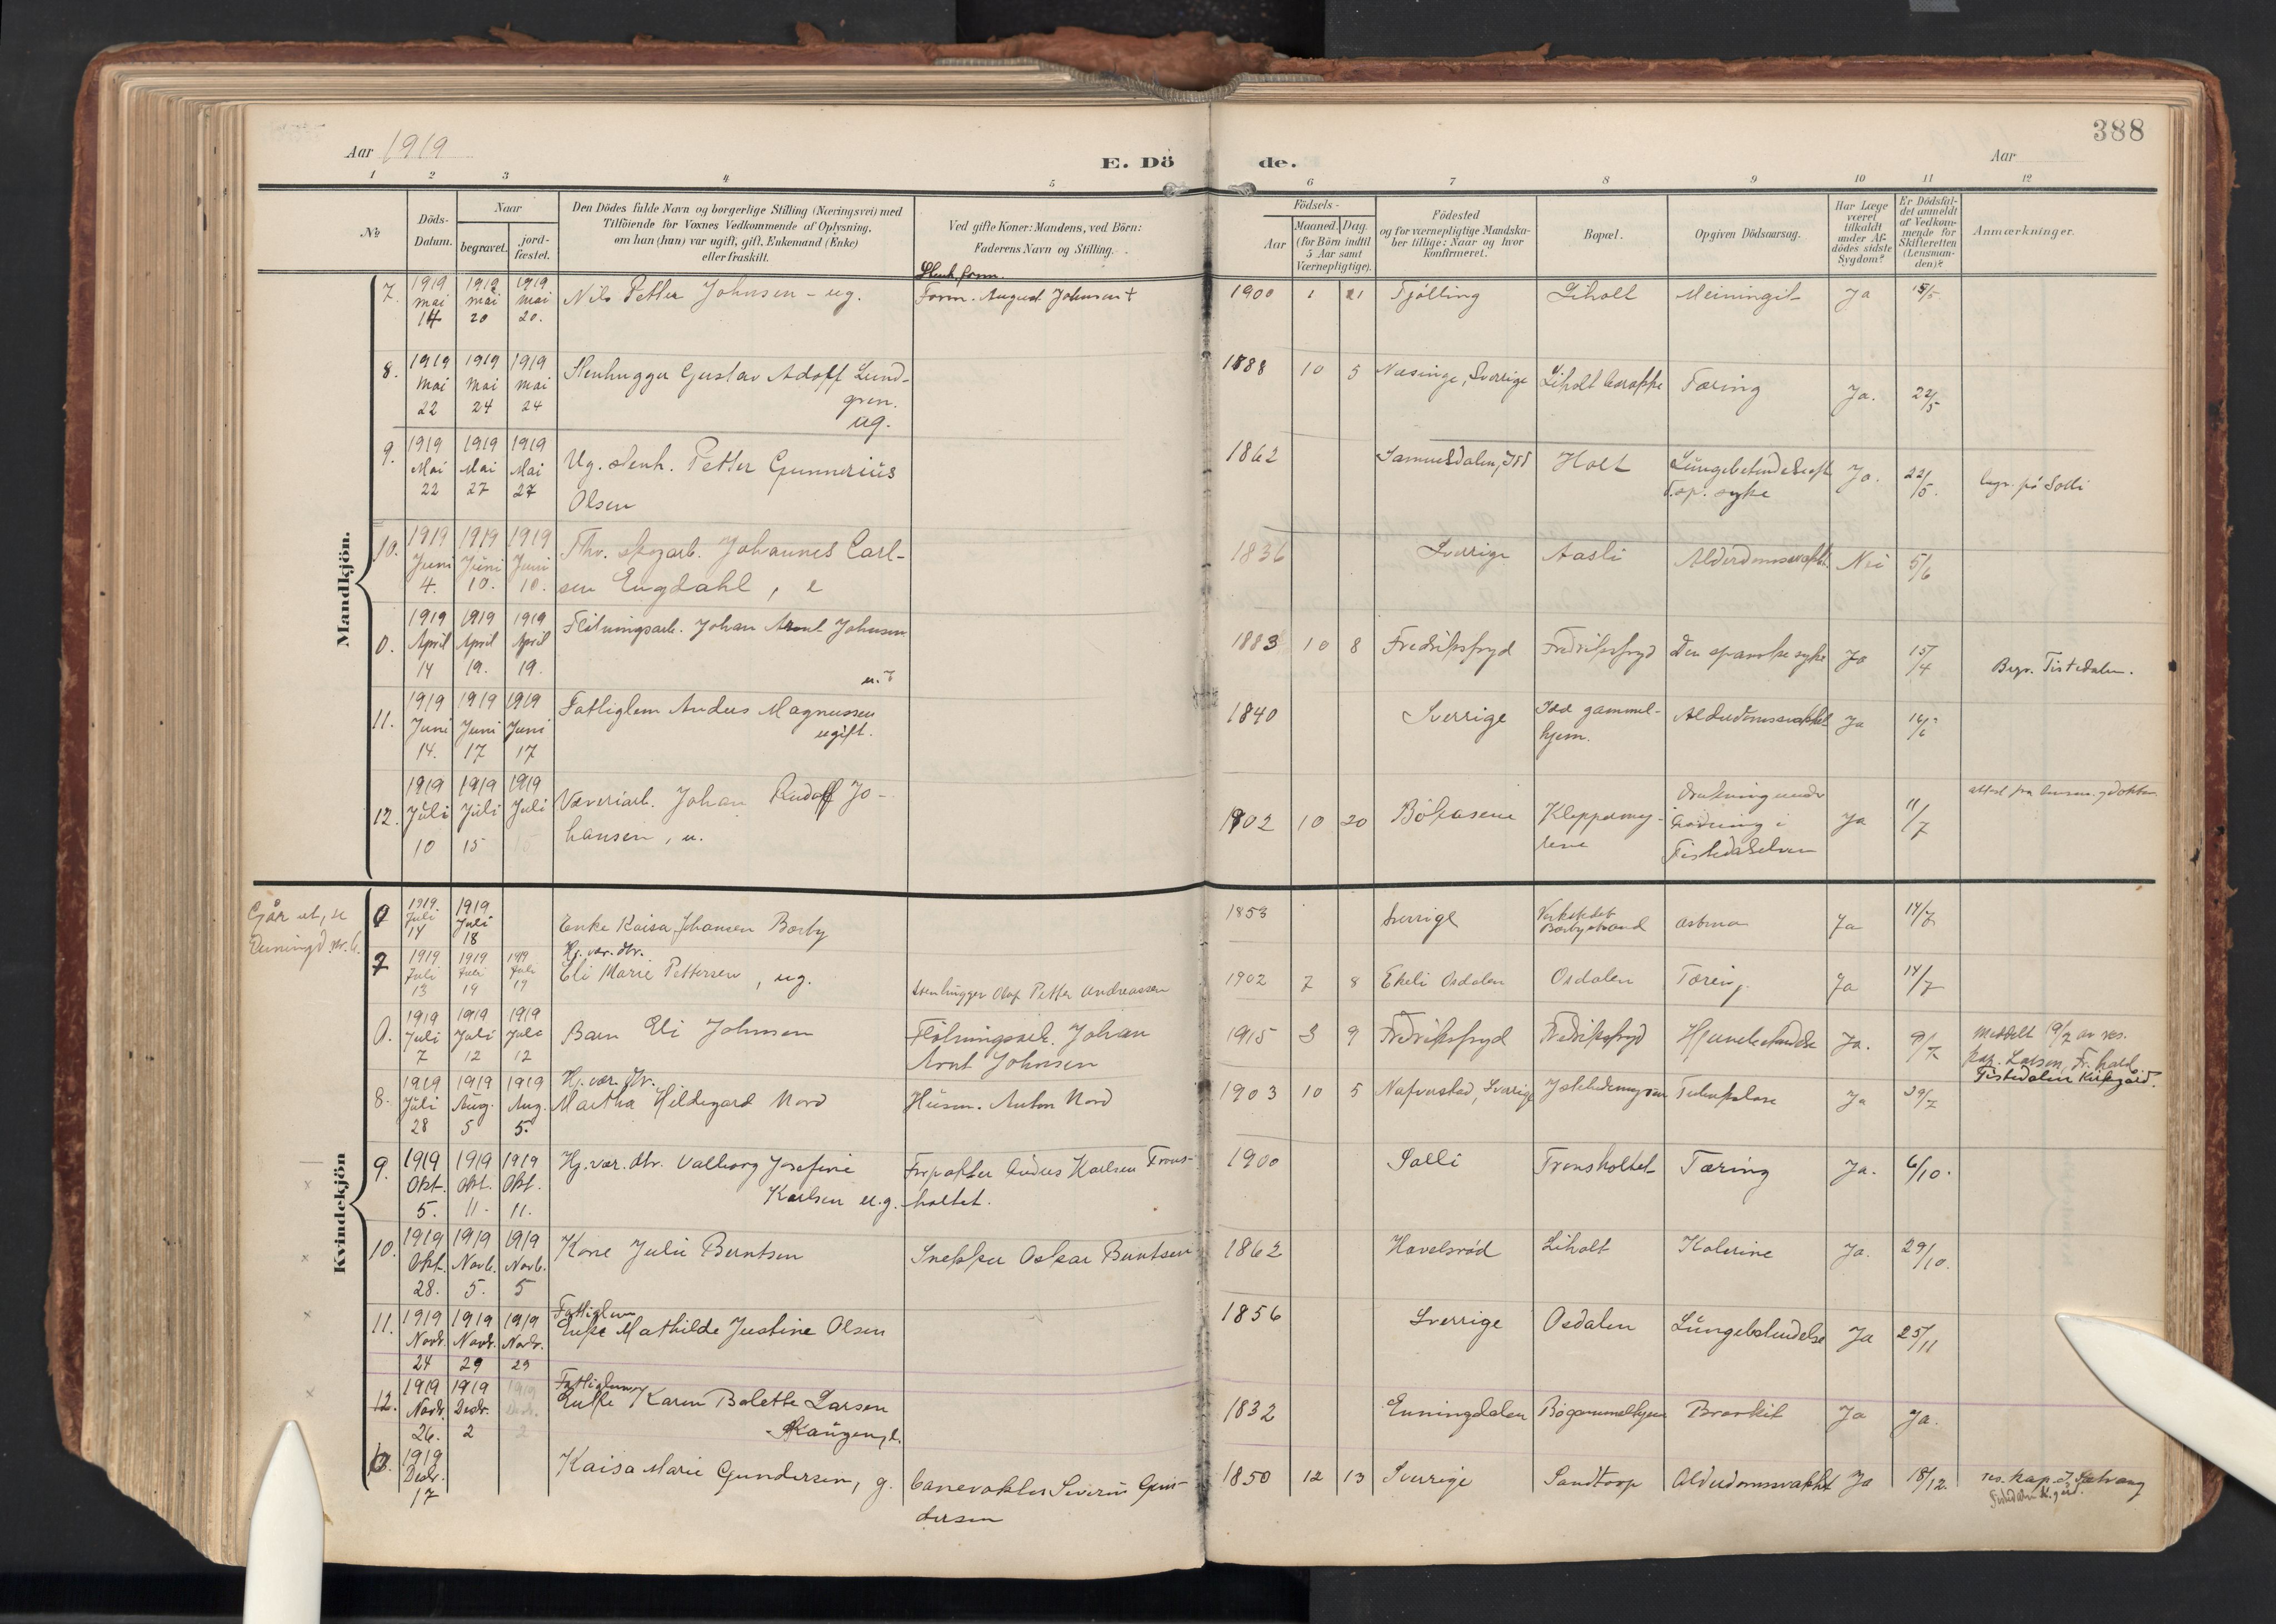 388
Aar 1919
E. Dö de.
Aar
1 2 3 4 5 6 7 8 9 10 11 12
№
Döds-Datum.
Naar
begravet.
jord-fæstet.
Den Dödes fulde Navn og borgerlige Stilling (Næringsvei) med
Tilföiende for Voxnes Vedkommende af Oplysning,
om han (hun) var ugift, gift, Enkemand (Enke)
eller fraskilt.
Ved gifte Koner: Mandens, ved Börn:
Faderens Navn og Stilling.
Födsels-
Aar
Maaned. Dag.
(for Börn indtil
5 Aar samt
Værnepligtige).
Födested
og for værnepligtige Mandska-
ber tillige: Naar og hvor
konfirmeret.
Bopæl.
Opgiven Dödsaarsag.
Har Læge
været
tilkaldt
under Af-
dödes sidste
Sygdom?
Er Dödsfal-
det anmeldt
af Vedkom-
mende for
Skifteretten
(Lensman-
den)?
Anmærkninger.
Mandkjön.
7. 1919 mai 14 1919 mai 20 1919 mai 20. Nils Petter Johnsen - ug. Stenh. form. Form. August Johnsen † 1900 1 21 Tjölling Liholt Meiningit Ja 15/5
8. 1919 Mai 22 1919 Mai 24 1919 mai 24 Stenhugger Gustav Adolf Lund-
gren.
ug. 1888 10 5 Næsinge, Sverrige Liholt barakke Tæring Ja. 22/5
9. 1919 Mai 22 1919 Mai 27 1919 Mai 27 Ug. stenh. Petter Gunnerius
Olsen 1862 Samuelsdalen, Idd Holt Lungebetendelse eft.
d. sp. syke Ja. 22/5. begr. på Solli
10. 1919 Juni 4. 1919 Juni 10. 1919 Juni 10. Fhv. skogarb. Johannes Carl-
sen Engdahl, e 1836 Sverrige Aasli Alderdomssvakht. Nei 5/6
0. 1919 April 14 1919 April 19. 1919 April 19. Flötningsarb. Johan Arnt Johnsen 1883 10 8 Fredriksfryd Fredriksfryd Den spanske syke Ja 15/4 Begr. Tistedalen.
11. 1919 Juni 14. 1919 Juni 17 1919 Juni 17 Fattiglem Anders Magnussen
ugift. 1840 Sverrige Idd gammel-
hjem. Alderdomssvakhet Ja 16/6
12. 1919 Juli 10 1919 Juli 15 1919 Juli 15 Væveriarb. Johan Rudolf Jo-
hansen, u. 1902 10 20 Bökasene Kleppermy-
rene Drukning under
badning i
Tistedalselven Ja 11/7
Kvindekjön
Går ut, se
Enningd. nr. 6.
0 1919 Juli 14 1919 Juli 18 Enke Kaisa Johansen Borby 1853 Sverrige Verkstedet
Borbystrand astma Ja 14/7
7 1919 Juli 13 1919 Juli 19 1919 Juli 19 Hj. vær. dtr.
Eli Marie Pettersen, ug. Stenhugger Olof Petter Andreassen 1902 7 8 Ekeli Osdalen Osdalen Tæring. Ja 14/7
0. 1919 Juli 7 1919 Juli 12 1919 Juli 12 Barn Eli Johnsen Flötningsarb. Johan
Arnt Johnsen 1915 3 9 Fredriksfryd Fredriksfryd Hjernebetendelse Ja. 9/7 Meddelt 19/7 av res.
kap. Larsen, Fr.hald.
Tistedalen Kirkegård.
8. 1919 Juli 28 1919 Aug. 5 1919 Aug. 5. Hj. vær. dtr.
Martha Hildegard Nord Husm. Anton Nord 1903 10 5 Naverstad, Sverrige Tuberkulose Ja 29/7
9. 1919 Okt. 5. 1919 Okt. 11. 1919 Okt. 11. Hj. vær. dtr. Valborg Josefine
Karlsen u.g. Forpakter Anders Karlsen Trons-
holtet. 1900 Solli Tronsholtet Tæring Ja. 6/10.
10. 1919 Okt. 28. 1919 Novb. 5. 1919 Novb. 5 Kone Julie Berntsen Snekker Oskar Berntsen 1862 Havelsröd Liholt Kolerine Ja. 29/10.
11. 1919 Novbr. 24 1919 Novbr. 29 1919 Novbr. 29 Fattiglem
Enke Mathilde Justine Olsen 1856 Sverrige Osdalen Lungebetendelse Ja 25/11
12. 1919 Novbr. 26. 1919 Decbr. 2 1919 Decbr. 2 Fattiglem
Enke Karen Bolette Larsen 1832 Enningdalen Bögammelhjem Bronkit Ja Ja.
0. 1919 Decbr. 17 Kaisa Marie Gundersen, g. Banevokter Severin Gun-
dersen 1850 12 13 Sverrige Sandtorp Alderdomssvakht Ja 18/12. res. kap.
Tistedalen k.gård.